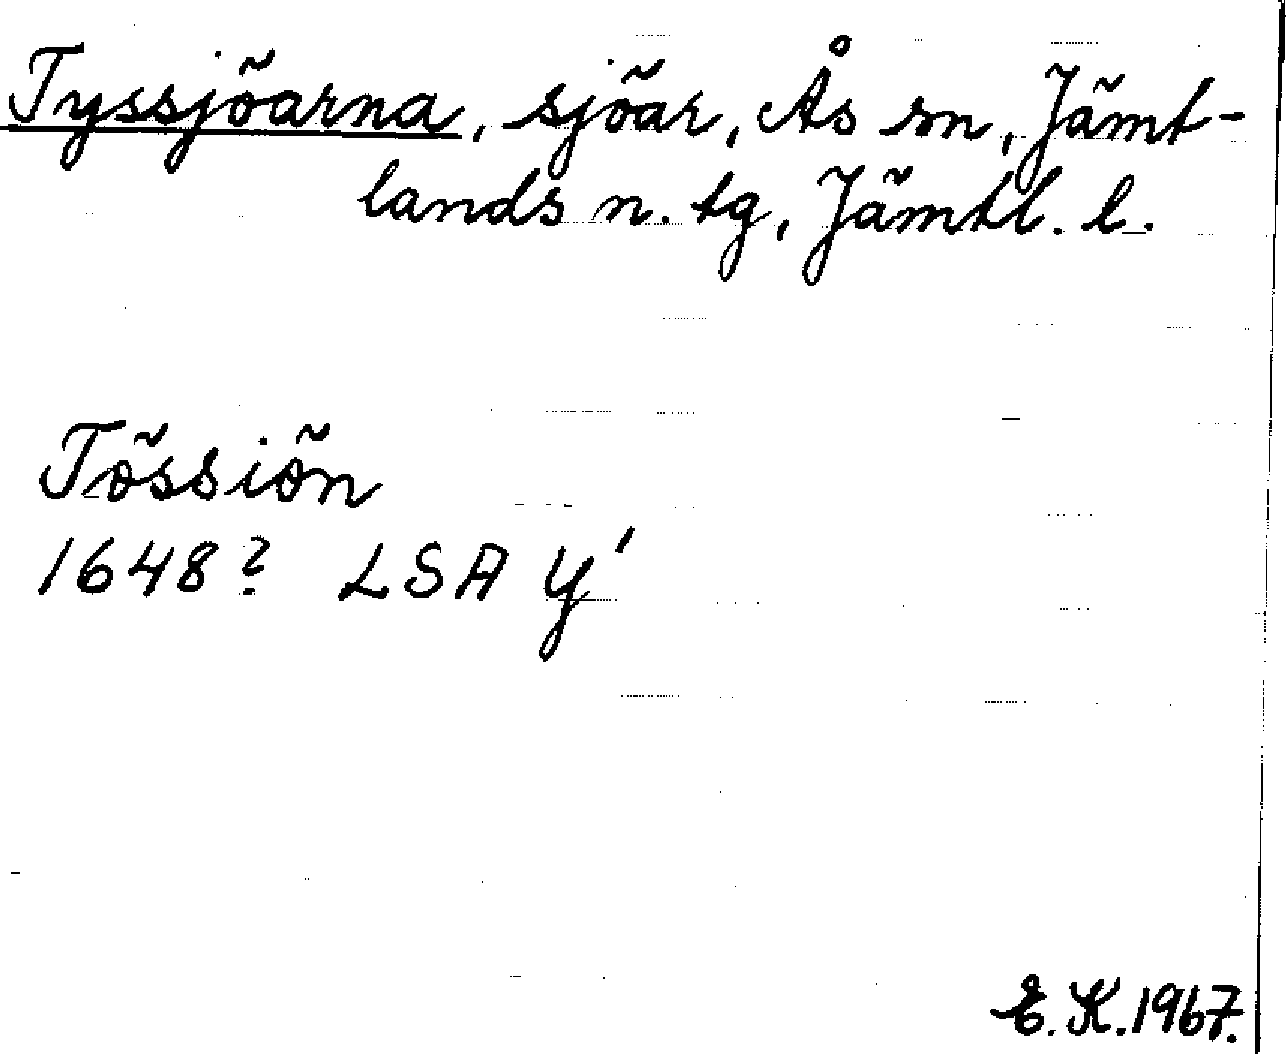 Tyssjöarna, sjöar, Ås sn, Jämt-
lands n. tg, Jämtl. l.
Tössiön
1648? LSA Y'
E.K.1967.